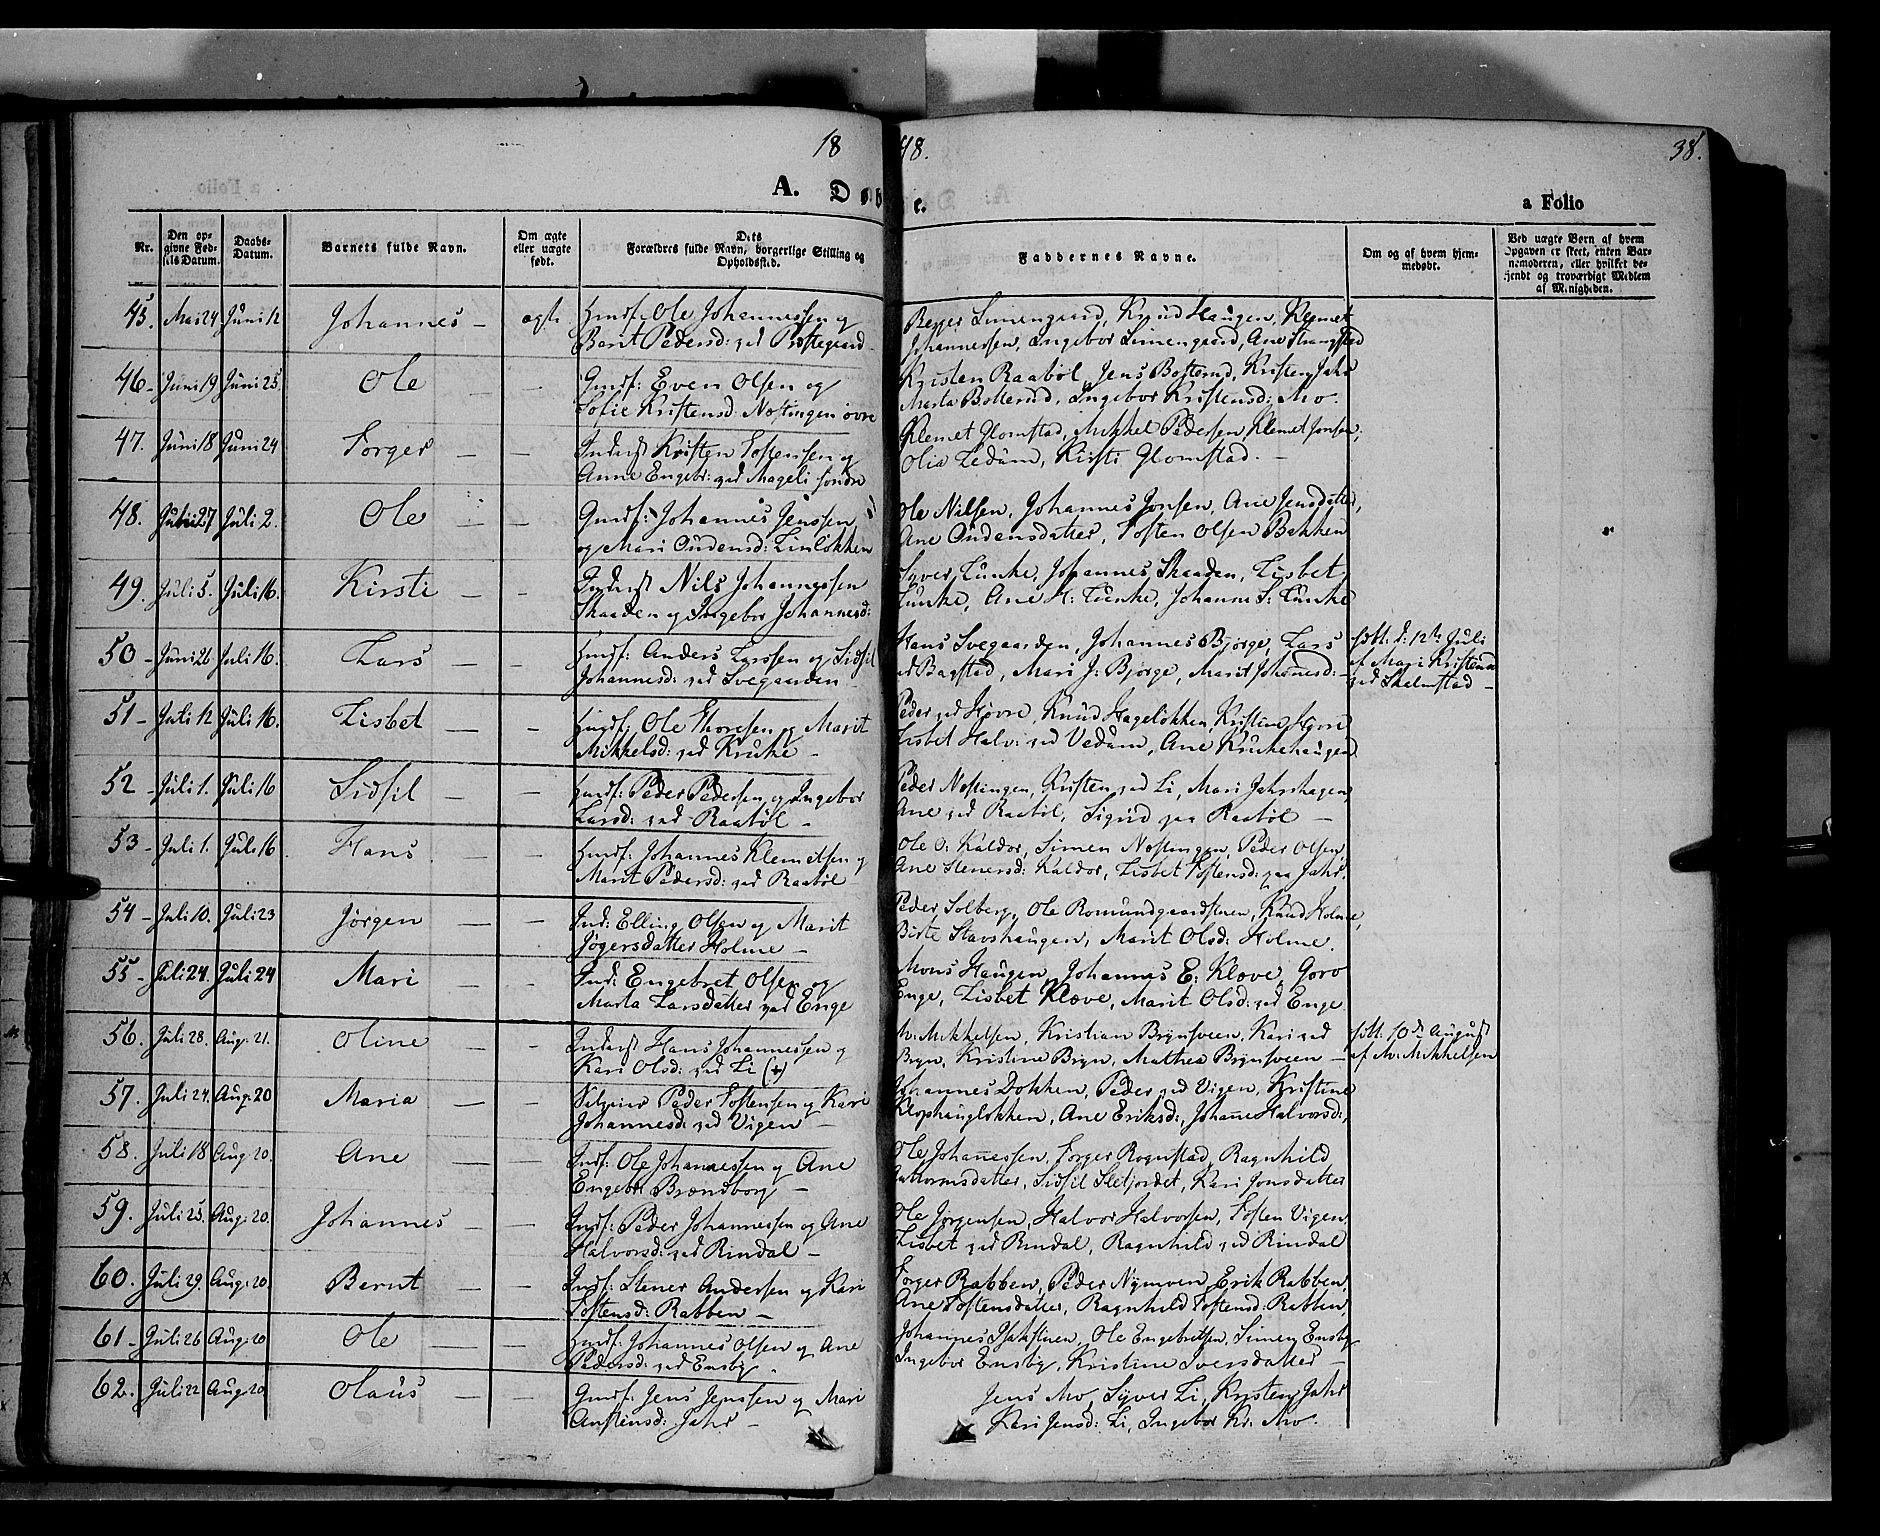 1848.
38.
A. Døbte.
a Folio
Nr.
Den opgivne Fødsels Datum.
Daabs-Datum.
Barnets fulde Navn.
Om ægte eller uægte født.
Dets Forældres fulde Navn, borgerlige Stilling og Opholdssted.
Faddernes Navne.
Om og af hvem hjemmedøbt.
Ved uægte Børn af hvem Opgaven er skeet, enten Barnemoderen, eller hvilket bekjendt og troværdigt Medlem af Menigheden.
45. Mai 24 Juni 12 Johannes - ægte Huusf: Ole Johannessen og
Berit Pedersd: ved Prestegaard
Simengaard, Knud Haugen, Klemet
Johannessen, Ingebor Simengaard, Ane
46 - Juni 19 Juni 25. Ole - Gmdf: Even Olsen og
Sofie Kristensd: Nostingen øvre
Kristen Raabøl, Jens Botterud, Kristen Jahr
Marta Botterud, Ingebor Kristensd: Mo.
47. Juni 18 Juni 24 Torger - - Inderst Kristen Tostensen og
Anne Engebr: ved Mageli søndre
Klemet Glomstad, Mikkel Pedersen, Klemet Jonsen,
Olia Ledum, Kirsti Glomstad. -
48. Juni 27 Juli 2. Ole - - Gmdf: Johannes Jenssen
og Mari Oudensd: Linløkken
Ole Nilsen, Johannes Jonsen, Ane Jensdatter,
Ane Oudensdatter, Tosten Olsen Bakken
49. Juli 5. Juli 16. Kirsti - - Inderst Nils Johannessen
Skaaden og Ingebor Johannesd:
Syver Lunke, Johannes Skaaden, Lisbet
Lunke, Ane H: Lunke, Johanne S: Lunke
50 - Juni 26 Juli 16. Lars - - Huusf: Anders Larssen og Sidsil
Johannesd: ved Svegaarden -
Hans Svegaarden, Johannes Bjørge, Lars
ved Bagstad, Mari J: Bjørge, Marit Johanesd: -
hdbt. d: 12te Juli
af Mari Kristensd
ved Skelmstad -
51 - Juli 12 Juli 16. Lisbet - - Huusf: Ole Thoresen og Marit
Mikkelsd: ved Kruke -
Peder ved Høvre, Knud Hageløkken, Kristine Høvre
Lisbet Halv: ved Vedum, Ane Krukehaugen
52 - Juli 1. Juli 16 Sidsil - - Huusf: Peder Pedersen og Ingebor
Larsd: ved Raabøl -
Peder Nostingen, Kristen ved Li, Mari Jahrshagen
Ane ved Raabøl, Sigrid paa Raabøl -
53 - Juli 1. Juli 16 Hans - - Huusf: Johannes Klemetsen og
Marit Pedersd: ved Raabøl
Ole O: Kaldor, Simen Nostingen, Peder Olsen,
Ane Stenersd: Kaldor, Lisbet Tostensd: paa Jahr.
54 - Juli 10. Juli 23 Jørgen - - Ind: Elling Olsen og Marit
Jøgersdatter Holme -
Peder Solberg, Ole Romundgaardstuen, Knud Holme,
Birte Stavshaugen, Marit Olsd: Holme.
55 - Juli 24. Juli 24 Mari - - Ind: Engebret Olsen og
Marta Larsdatter ved Enge
Mons Haugen, Johannes E: Kløve, Goro
Enge, Lisbet Kløve, Marit Olsd: ved Enge
56. Juli 28. Aug. 21. Oline - - Inderst Hans Johannessen og
Kari Olsd: ved Li (+)
M: Mikkelsen, Kristian Brynsveen, Kari ved
Bryn, Kristine Bryn, Mathea Brynsveen -
hdbt. 10de August
af M: Mikkelsen
57. Juli 24. Aug. 20 Maria - - Peder Tostensen og Kari
Johannesd: ved Vigen -
Johannes Dokken, Peder ved Vigen, Kristine
Klophaugløkken, Ane Eriksd:, Johane Halvorsd:,
58. Juli 18 Aug. 20. Ane - - Indf: Ole Johannessen og Ane
Engebr: Brændborg -
Ole Johanessen, Torger Rognstad, Ragnhild
Guttormsdatter, Sidsil Sletjordet, Kari Jonsdatter
59. Juli 25. Aug. 20. Johannes - - Indf: Peder Johannessen og Ane
Halvorsd: ved Rindal -
Ole Jørgensen, Halvor Halvorsen, Tosten Vigen
Lisbet ved Rindal, Ragnhild ved Rindal
60. Juli 29. Aug. 20. Bernt - - Indf: Stener Andersen og Kari
Tostensd: Rabben -
Torger Rabben, Peder Nymoen, Erik Rabben,
Ane Tostensdatter, Ragnhild Tostensd: Rabben
61 - Juli 26 Aug. 20 Ole - - Huusf: Johannes Olsen og Ane
Pedersd: ved Ensby.
Johannes Ole Engebretsen, Simen Ensby
Ingebor Ensby, Kristine Iversdatter -
62. Juli 22 Aug. 20 Olaus - - Gmdf: Jens Jenssen og Mari
Anstensd: Jahr -
Jens Mo, Syver Li, Kristen Jahr
Kari Jensd: Li, Ingebor Kr: Mo.